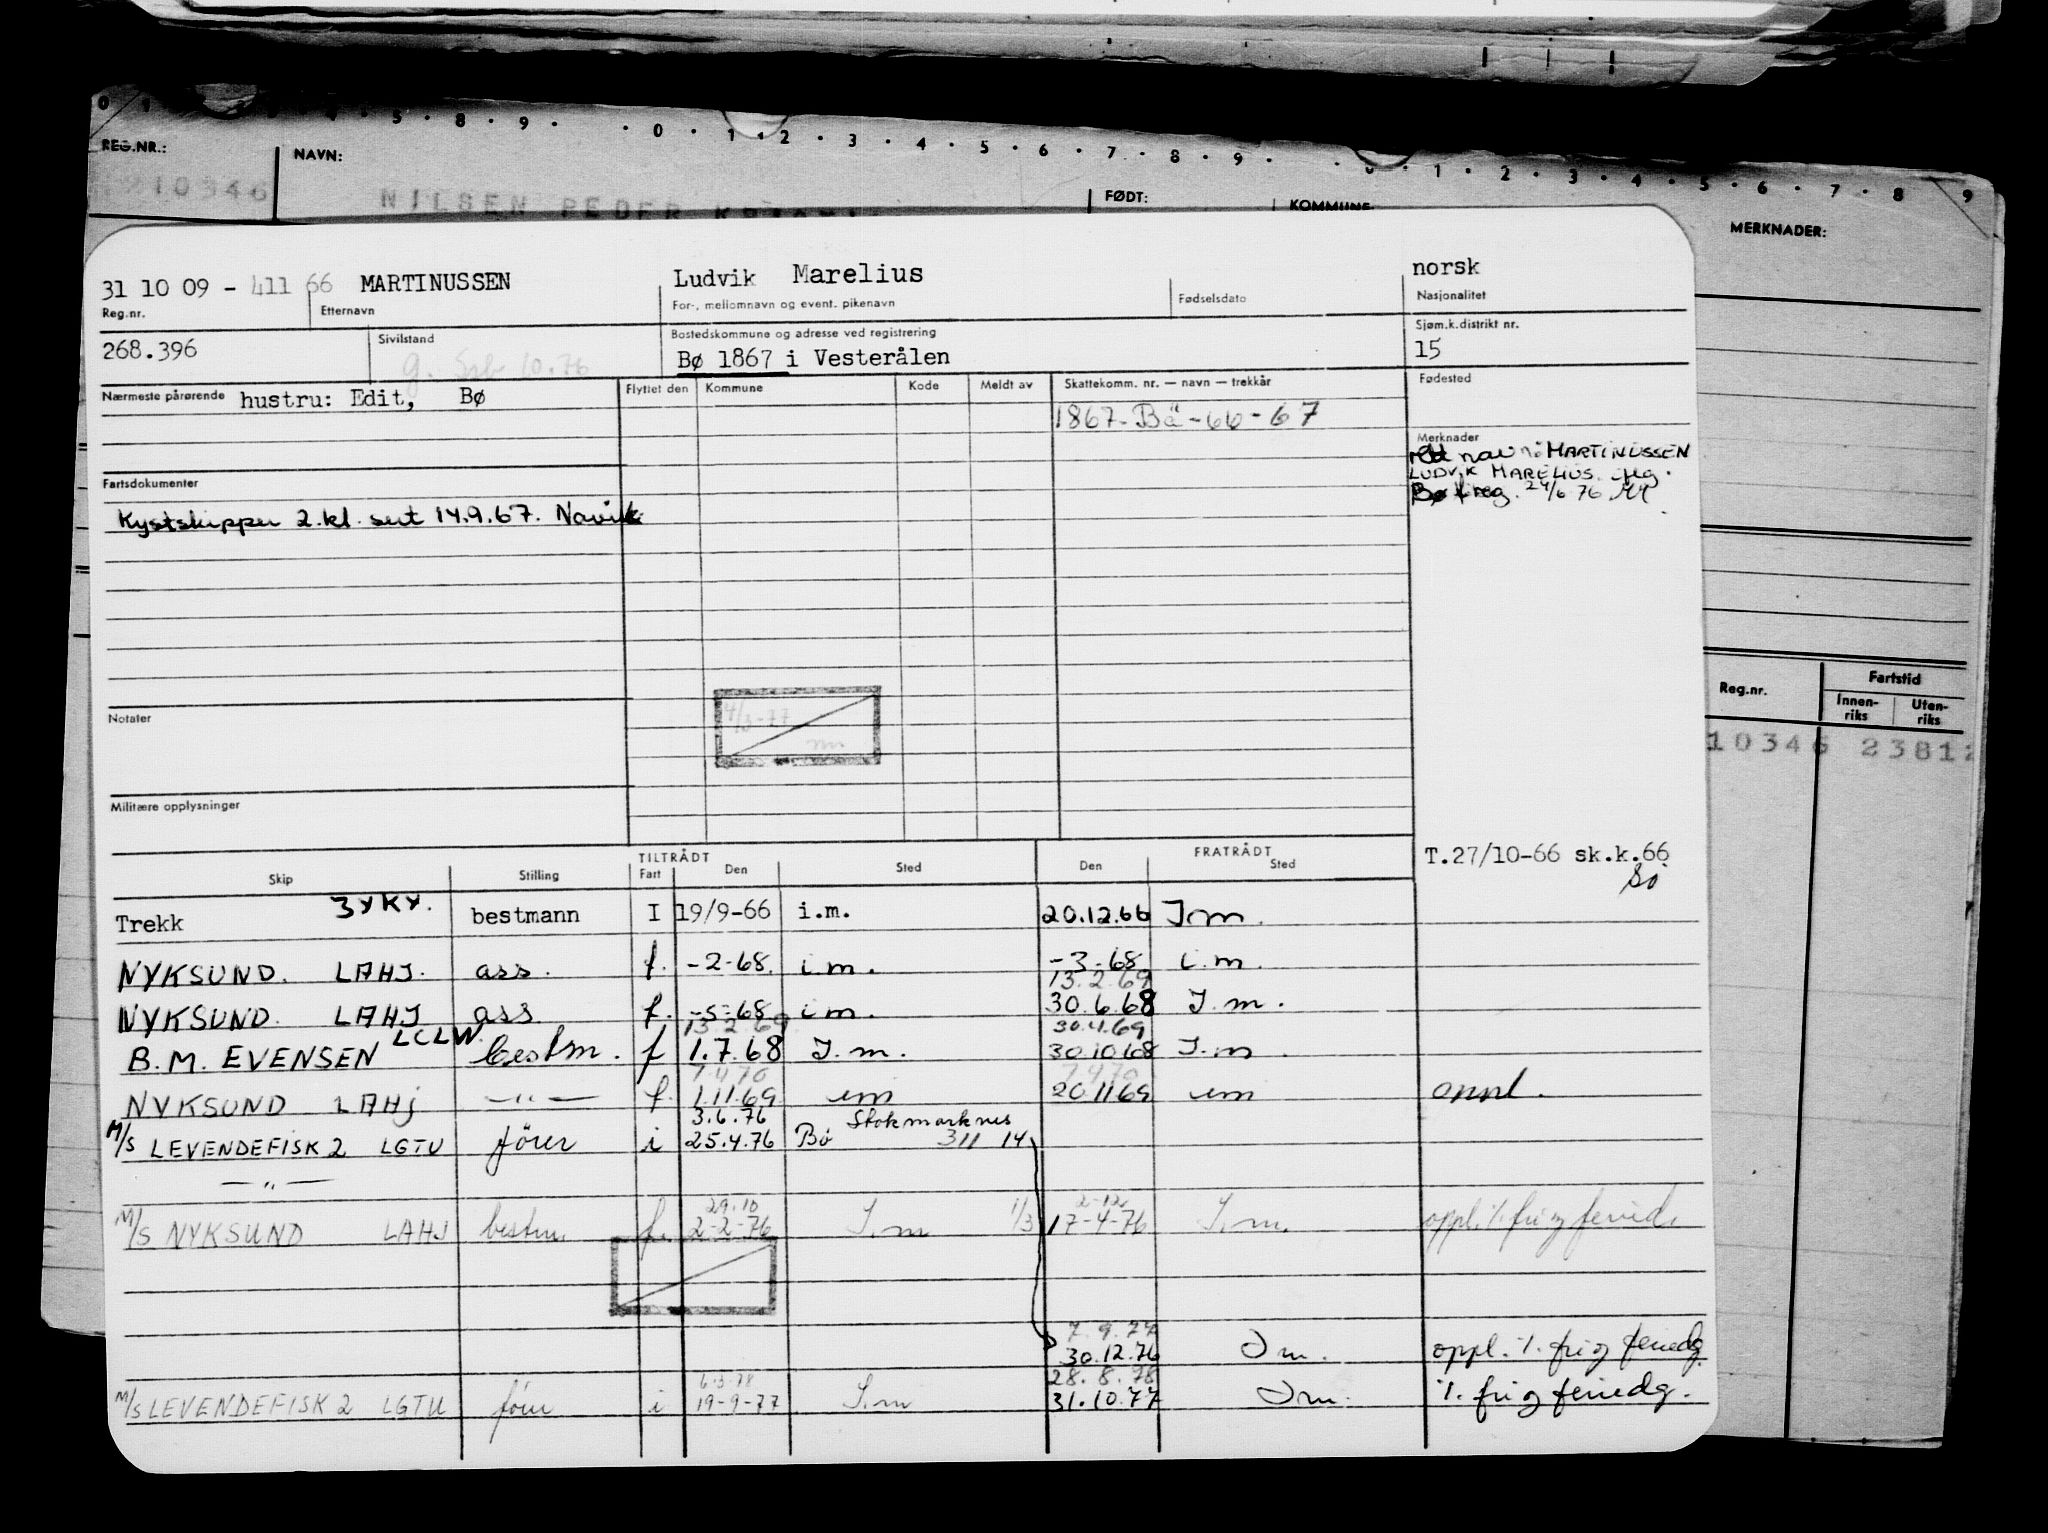 0 1 4 . 5 . 8 . 9 . . 0 . 1 . 2 . 3 . 4 . 5 . 6 . 7 . 8 . 9 . . 0 . 1 . 2 . 3 . 4 . 5 . 6 . 7 . 8 9
REG.NR.:
NAVN:
10346
NILSEN PEDER
FØDT:
KOMMUNE:
MERKNADER:
31 10 09 - 411 66 MARTINUSSEN Ludvik Marelius norsk
Reg.nr. Etternavn For-, mellomnavn og event. pikenavn Fødselsdato Nasjonalitet
268.396 Sivilstand Bostedskommune og adresse ved registrering Sjøm.k.distrikt nr.
g. 10.76 Bø 1867 i Vesterålen 15
Nærmeste pårørende hustru: Edit, Bø Flyttet den Kommune Kode Meldt av Skattekomm. nr. — navn — trekkår Fødested
1867-Bö-66-67
Merknader
rett navn: MARTINUSSEN
LUDVIK MARELIUS.
Bø f.reg. 24/6 76
Fartsdokumenter
Kystskipper 2.kl. sert 14.9.67. Narvik
Notater
4/3-77
Militære opplysninger
Reg.nr. Fartstid
Innen-riks Uten-riks
10346 23812
TILTRÅDT FRATRÅDT T.27/10-66 sk.k.66
Skip Stilling Fart Den Sted Den Sted
Trekk 3YKY. bestmann I 19/9-66 i.m. 20.12.66 I.m.
NYKSUND. LAHJ. ass. f. -2-68. i.m. -3-68 i.m.
13.2.69
NYKSUND. LAHJ ass. f. -5-68 i.m. 30.6.68 I.m.
LCLW 13.2.69 30.4.69
B.M. EVENSEN bestm. f 1.7.68 I.m. 30.10.68 I.m.
7.4.70 7.4.70
NYKSUND LAHJ —"— f. 1.11.69 im 20.11.69 im oppl.
3.6.76 Stokmarknes
M/S LEVENDEFISK 2 LGTU förer i 25.4.76 Bö 311 14
—"—
29.10 2-12
M/S NYKSUND LAHJ bestm. f. 2-2-76 I.m 1/3 17-4-76 I.m. oppl. %. fri og feried.
7.9.77
30.12.76 I m. oppl. %. fri og feriedg.
6.3.78 28.8.78
M/S LEVENDEFISK 2 LGTU förer i 19-9-77 I.m 31.10.77 I m. %. fri og feriedg.